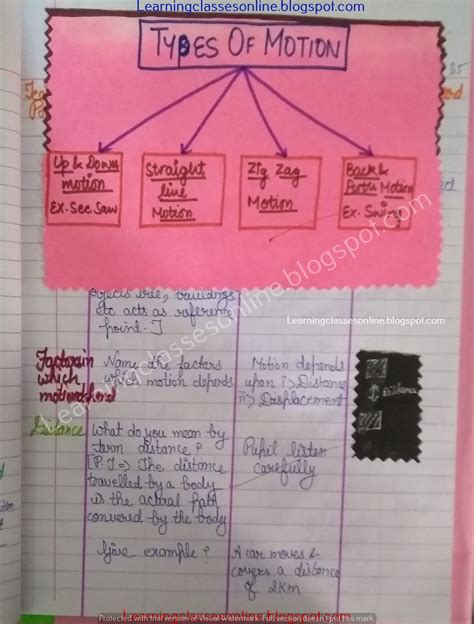 Learningclassesonline.blogspot.com
TYPES OF MOTION
35
Up & Down
motion
Ex. See Saw
Straight
line
Motion
Zig Zag
Motion
Back &
Forth Motion
Ex. Swing
objects tree, buildings
etc acts as reference
point. ]
Learningclassesonline.blogspot.com
Learningclassesonline.blogspot.com
Factors in
which
motion
Name the factors
which motion depends
Motion depends
upon i) Distance
ii) Displacement
Distance
Distance
What do you mean by
term distance?
[P.T => The distance
travelled by a body
is the actual path
convered by the body
Pupil listen
carefully
Give example?
A car moves &
covers a distance
of 2Km
Learningclassesonline.blogspot.com
Protected with trial version of Visual Watermark. Full version doesn't put this mark.